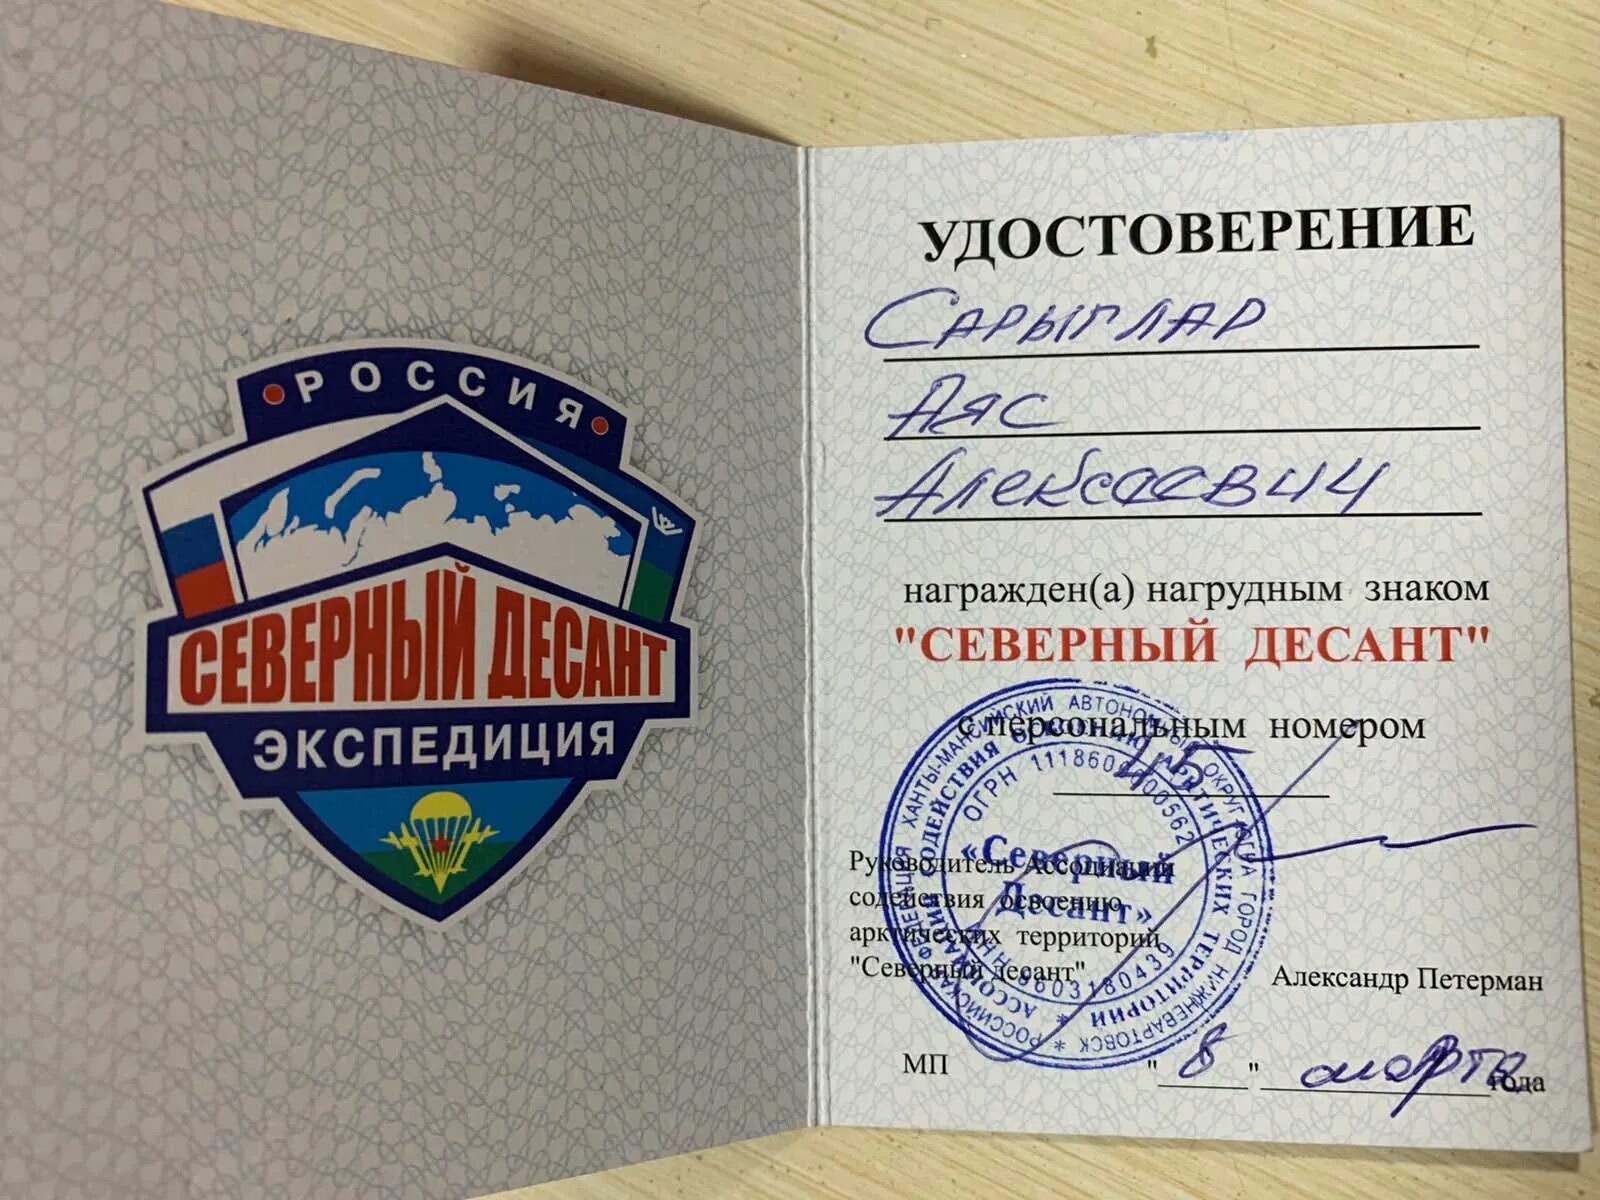 РОССИЯ
СЕВЕРНЫЙ ДЕСАНТ
ЭКСПЕДИЦИЯ
УДОСТОВЕРЕНИЕ
Сарыглар
Аяс
Алексеевич
награжден(а) нагрудным знаком
"СЕВЕРНЫЙ ДЕСАНТ"
с персональным номером
45
Руководитель Ассоциации
содействия освоению
арктических территорий
"Северный десант"
Александр Петерман
МП
"8" марта года
* РОССИЙСКАЯ ФЕДЕРАЦИЯ ХАНТЫ-МАНСИЙСКИЙ АВТОНОМНЫЙ ОКРУГ-ЮГРА ГОРОД НИЖНЕВАРТОВСК
* АССОЦИАЦИЯ СОДЕЙСТВИЯ ОСВОЕНИЮ АРКТИЧЕСКИХ ТЕРРИТОРИЙ
ОГРН
ИНН 8603180439
«Северный
Десант»